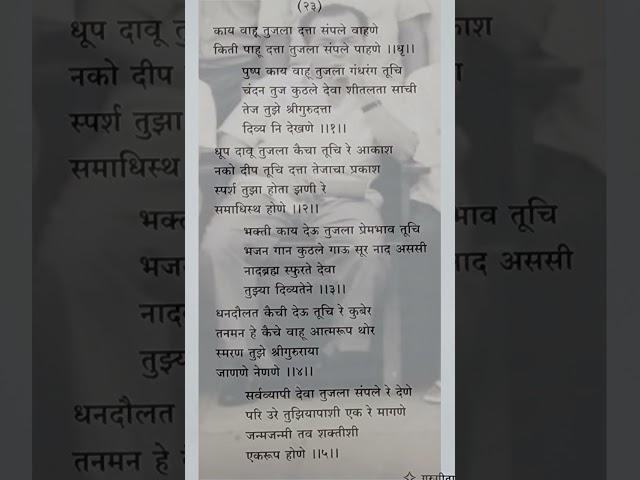 (२३)
काय वाहू तुजला दत्ता संपले वाहणे
किती पाहू दत्ता तुजला संपले पाहणे ।।धृ।।
पुष्प काय वाहू तुजला गंधरंग तूचि
चंदन तुज कुठले देवा शीतलता साची
तेज तुझे श्रीगुरुदत्ता
दिव्य नि देखणे ।।१।।
धूप दावू तुजला कैचा तूचि रे आकाश
नको दीप तूचि दत्ता तेजाचा प्रकाश
स्पर्श तुझा होता झणी रे
समाधिस्थ होणे ।।२।।
भक्ती काय देऊ तुजला प्रेमभाव तूचि
भजन गान कुठले गाऊ सूर नाद अससी
नादब्रह्म स्फुरते देवा
तुझ्या दिव्यतेने ।।३।।
धनदौलत कैची देऊ तूचि रे कुबेर
तनमन हे कैचे वाहू आत्मरूप थोर
स्मरण तुझे श्रीगुरुराया
जाणणे नेणणे ।।४।।
सर्वव्यापी देवा तुजला संपले रे देणे
परि उरे तुझियापाशी एक रे मागणे
जन्मजन्मी तव शक्तीशी
एकरूप होणे ।।५।।